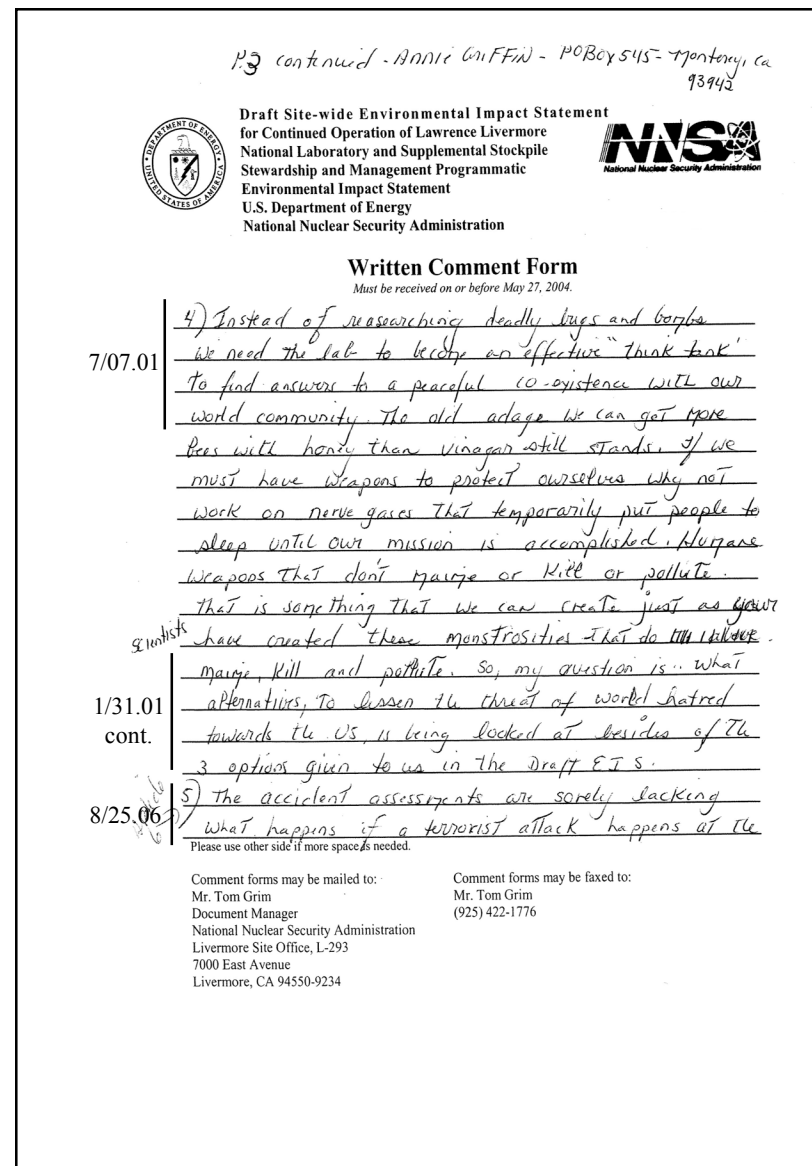 P.3 continued - Annie Griffin - PO Box 545 - Monterey, Ca
93942
Draft Site-wide Environmental Impact Statement
for Continued Operation of Lawrence Livermore
National Laboratory and Supplemental Stockpile
Stewardship and Management Programmatic
Environmental Impact Statement
U.S. Department of Energy
National Nuclear Security Administration
DEPARTMENT OF ENERGY
UNITED STATES OF AMERICA
NNSA
National Nuclear Security Administration
Written Comment Form
Must be received on or before May 27, 2004.
4) Instead of reasearching deadly bugs and bombs
7/07.01
we need the lab to become an effective "think tank"
to find answers to a peaceful co-existence with our
world community. The old adage we can get more
bees with honey than vinagar still stands. If we
must have weapons to protect ourselves why not
work on nerve gases that temporarily put people to
sleep until our mission is accomplished. Humane
weapons that don't maime or kill or pollute.
that is something that we can create just as your
scientists have created these monstrosities that do
maime, kill and pollute. So, my question is.. what
1/31.01
cont.
alternatives, to lessen the threat of world hatred
towards the US, is being looked at besides of the
3 options given to us in the Draft EIS.
8/25.06
5) The accident assessments are sorely lacking
what happens if a terrorist attack happens at the
Please use other side if more space is needed.
Comment forms may be mailed to:
Mr. Tom Grim
Document Manager
National Nuclear Security Administration
Livermore Site Office, L-293
7000 East Avenue
Livermore, CA 94550-9234
Comment forms may be faxed to:
Mr. Tom Grim
(925) 422-1776